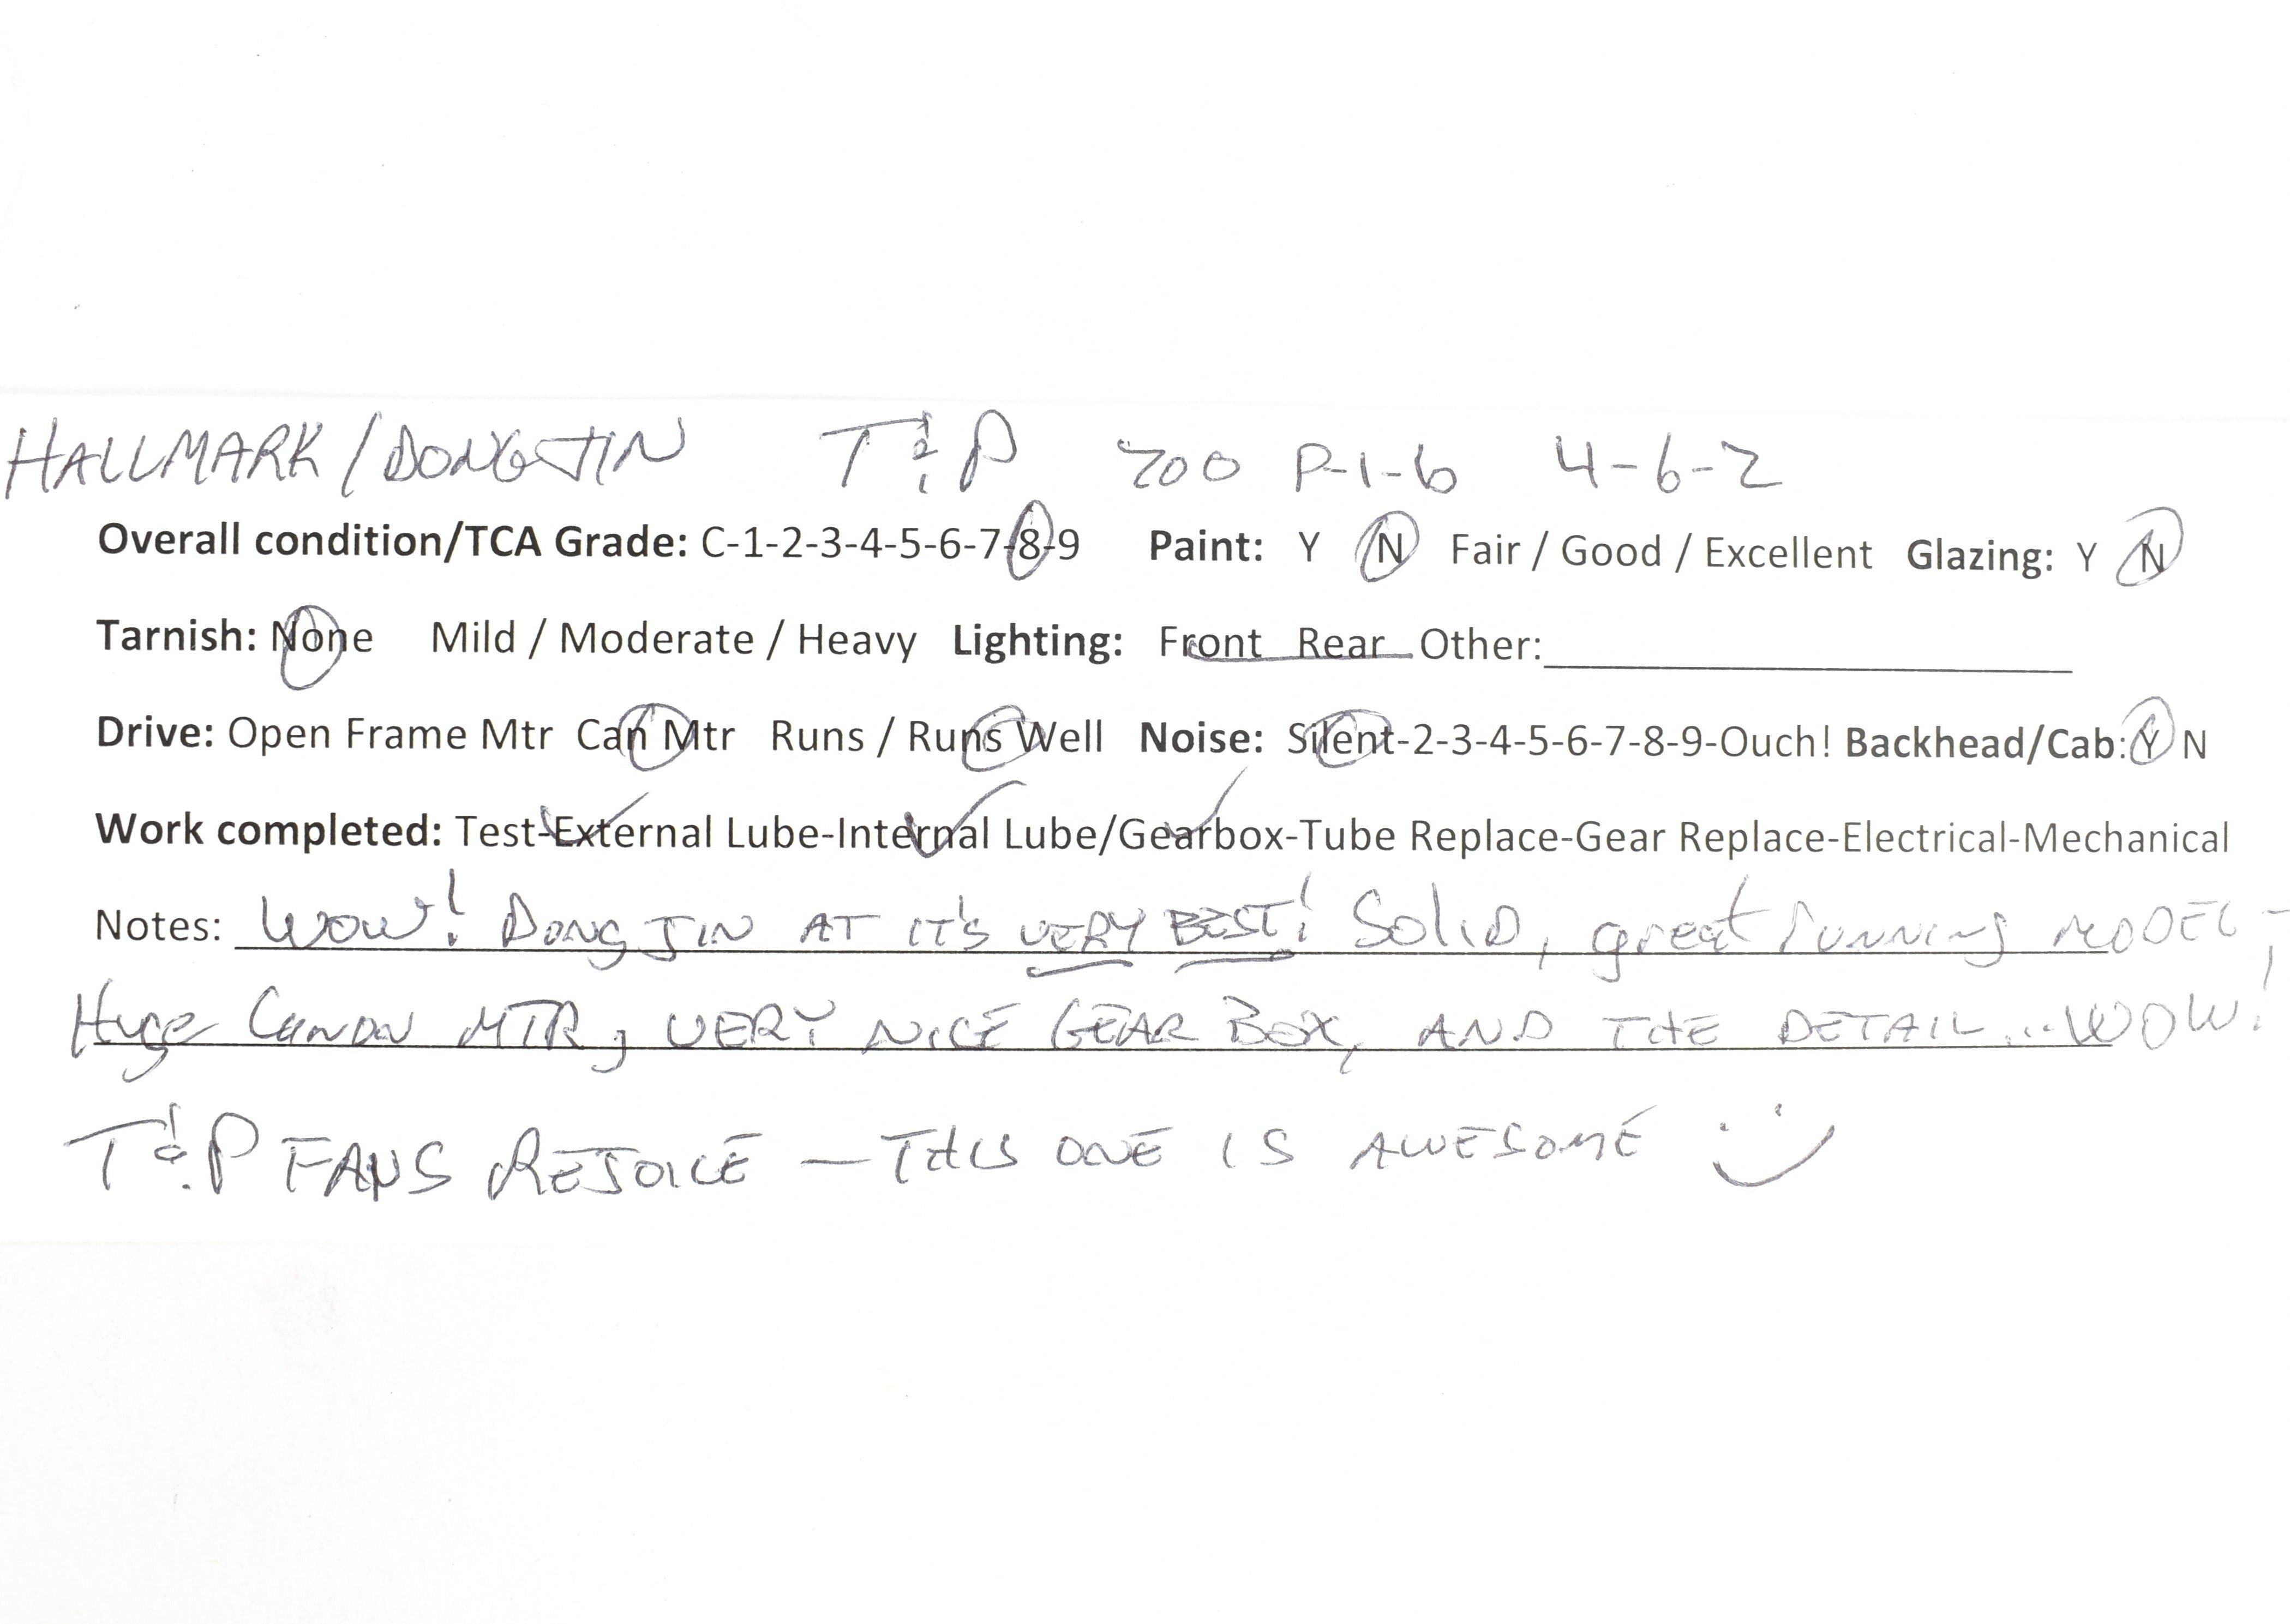 HALLMARK / DONGJIN T&P 700 P-1-b 4-6-2
Overall condition/TCA Grade: C-1-2-3-4-5-6-7-8-9 Paint: Y N Fair / Good / Excellent Glazing: Y N
Tarnish: None Mild / Moderate / Heavy Lighting: Front Rear Other:
Drive: Open Frame Mtr Can Mtr Runs / Runs Well Noise: Silent-2-3-4-5-6-7-8-9-Ouch! Backhead/Cab: Y N
Work completed: Test-External Lube-Internal Lube/Gearbox-Tube Replace-Gear Replace-Electrical-Mechanical
Notes: WOW! DONG JIN AT IT'S VERY BEST! SOLID, great running MODEL,
Huge CANON MTR, VERY NICE GEAR BOX, AND THE DETAIL...WOW!
T&P FANS REJOICE — THIS ONE IS AWESOME